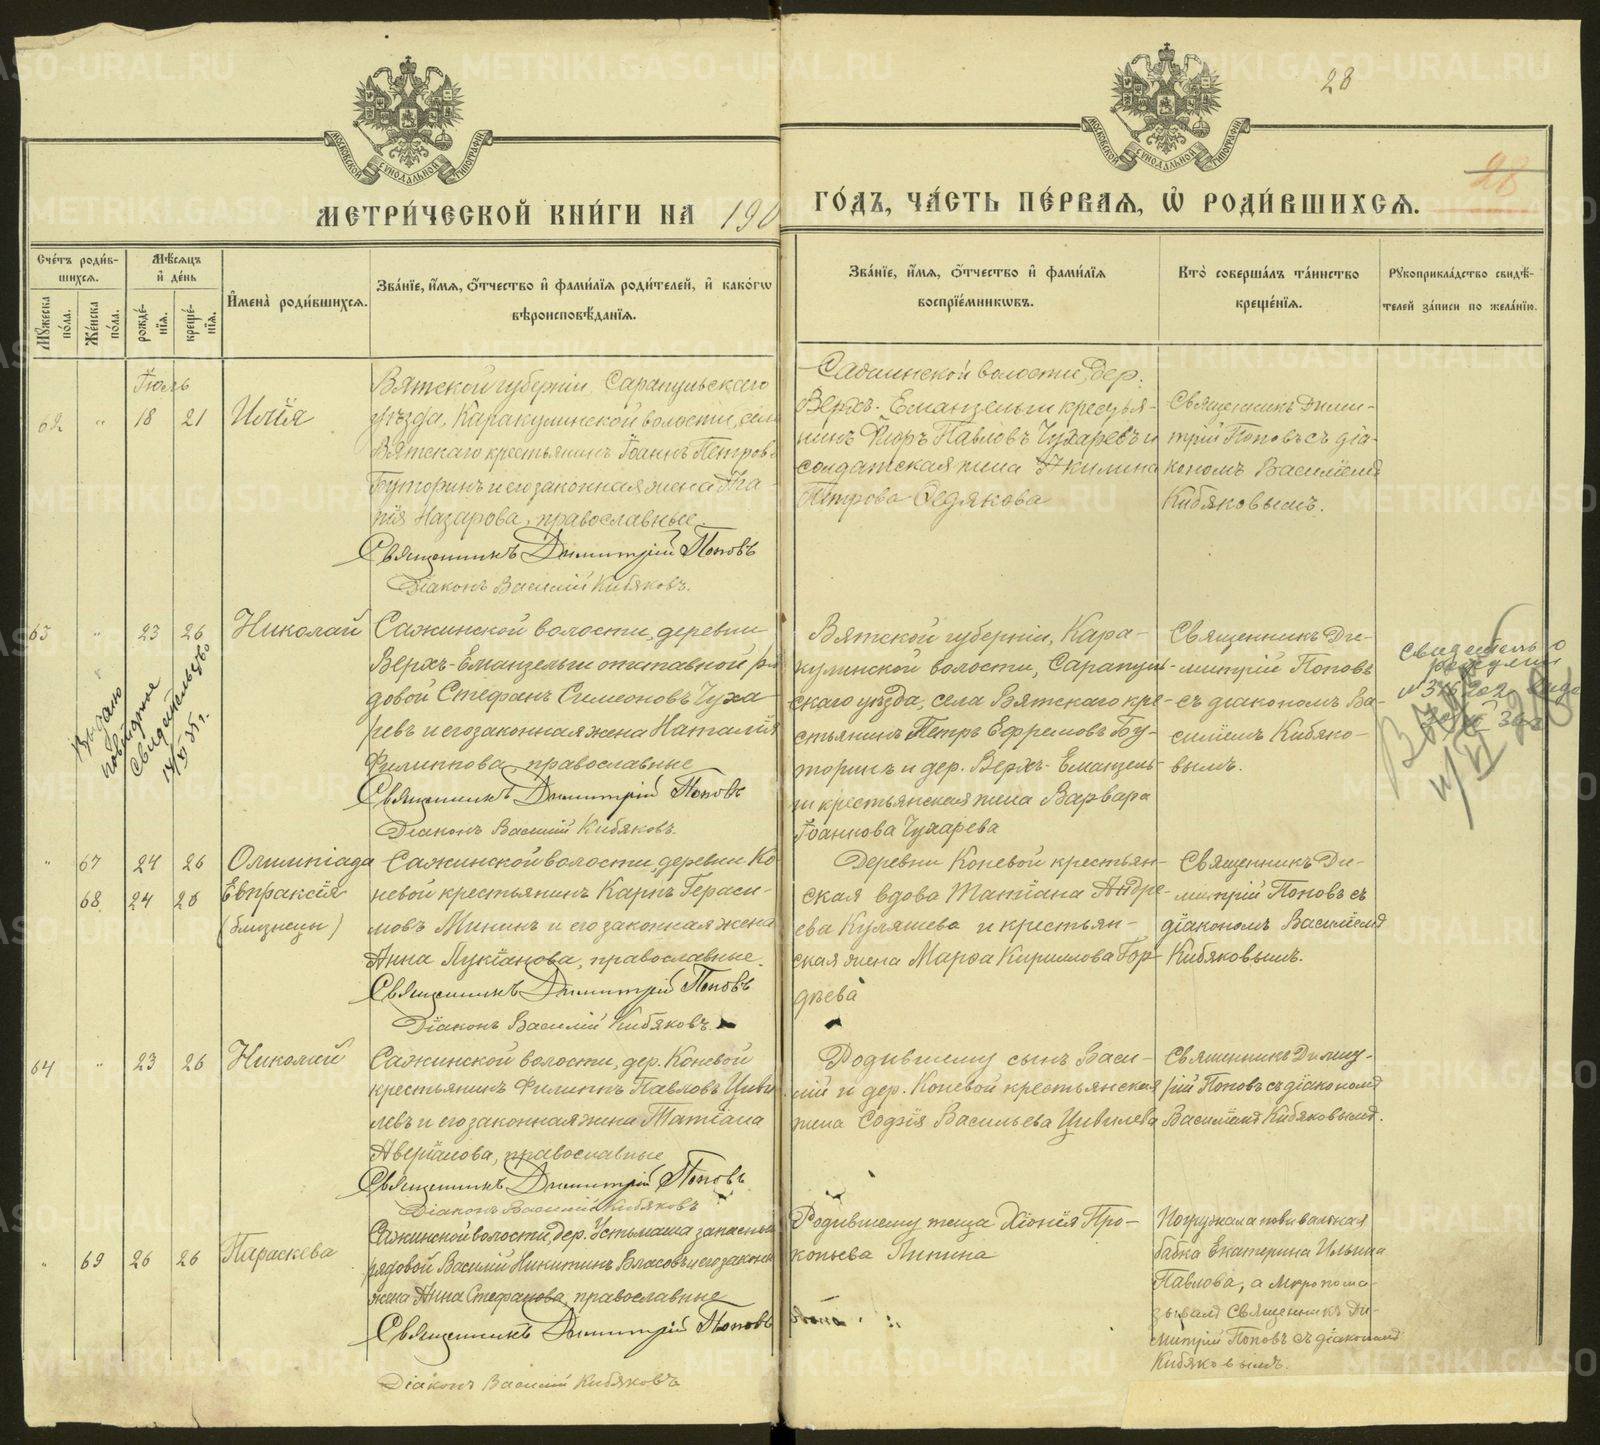 28
28
МОСКОВСКОЙ СѴНОДАЛЬНОЙ ТИПОГРАФІИ
МОСКОВСКОЙ СѴНОДАЛЬНОЙ ТИПОГРАФІИ
МЕТРИ́ЧЕСКОЙ КНИ́ГИ НА 190
ГО́ДЪ, ЧА́СТЬ ПЕ́РВАѦ, Ѡ҆ РОДИ́ВШИХСѦ.
Сче́тъ роди́в-
шихсѧ.
Мꙋ́жеска по́ла.
Же́нска по́ла.
Мѣ́сѧцъ
и҆ де́нь
рожде́-
нїѧ.
креще́-
нїѧ.
И҆мена̀ роди́вшихсѧ.
Зва́нїе, и҆́мѧ, ѻ҆́тчество и҆ фами́лїѧ роди́телей, и҆ како́гѡ
вѣроисповѣ́данїѧ.
Зва́нїе, и҆́мѧ, ѻ҆́тчество и҆ фами́лїѧ
воспрїе́мникѡвъ.
Кто̀ соверша́лъ та́инство
креще́нїѧ.
Рꙋкоприкла́дство свидѣ́-
телей за́писи по жела́нїю.
Іюль
62 " 18 21 Илія
Вятской губерніи, Сарапульскаго
уѣзда, Каракулинской волости, села
Вятскаго крестьянинъ Іоаннъ Петровъ
Буторинъ и его законная жена Ага-
пія Назарова, православные.
Священникъ Димитрій Поповъ
Діаконъ Василій Кибяковъ.
Сажинской волости, дер.
Верхъ-Еманзельги крестья-
нинъ Флоръ Павловъ Чухаревъ и
солдатская жена Акилина
Петрова Седякова
Священникъ Дими-
трій Поповъ съ діа-
кономъ Василіемъ
Кибяковымъ.
63 " 23 26 Николай
Сажинской волости, деревни
Верхъ-Еманзельги отставной ря-
довой Стефанъ Симеоновъ Чуха-
ревъ и его законная жена Наталія
Филиппова, православные
Священникъ Димитрій Поповъ
Діаконъ Василій Кибяковъ.
Вятской губерніи, Кара-
кулинской волости, Сарапуль-
скаго уѣзда, села Вятскаго кре-
стьянинъ Петръ Ефремовъ Бу-
торинъ и дер. Верхъ-Еманзель-
ги крестьянская жена Варвара
Іоаннова Чухарева
Священникъ Ди-
митрій Поповъ
съ діакономъ Ва-
силіемъ Кибяко-
вымъ.
Выдано
повторное
свидетельство
" 67 24 26 Олимпіада
68 24 26 Евпраксія
(близнецы)
Сажинской волости, деревни Ко-
невой крестьянинъ Карпъ Гераси-
мовъ Мининъ и его законная жена
Анна Лукіанова, православные.
Священникъ Димитрій Поповъ
Діаконъ Василій Кибяковъ.
Деревни Коневой крестьян-
ская вдова Татіана Андре-
ева Куляшева и крестьян-
ская жена Марѳа Кириллова Гор-
дѣева
Священникъ Ди-
митрій Поповъ съ
діакономъ Василіемъ
Кибяковымъ.
64 " 23 26 Николай
Сажинской волости, дер. Коневой
крестьянинъ Филиппъ Павловъ Циви-
левъ и его законная жена Татіана
Аверіанова, православные
Священникъ Димитрій Поповъ
Діаконъ Василій Кибяковъ
Родившему сынъ Васи-
лій и дер. Коневой крестьянская
жена Софія Васильева Цивилева
Священникъ Димит-
рій Поповъ съ діакономъ
Василіемъ Кибяковымъ.
" 69 26 26 Параскева
Сажинской волости, дер. Устьмаша запасный
рядовой Василій Никитинъ Власовъ и его законная
жена Анна Стефанова, православные
Священникъ Димитрій Поповъ
Діаконъ Василій Кибяковъ
Родившему теща Хіонія Про-
копьева Липина
Погружала повивальная
бабка Екатерина Ильина
Павлова, а мѵропома-
зывалъ Священникъ Ди-
митрій Поповъ съ діакономъ
Кибяковымъ.
METRIKI.GASO-URAL.RU